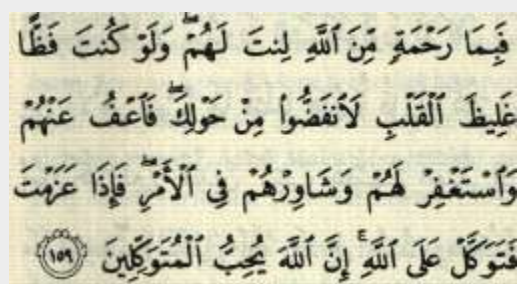 فَبِمَا رَحْمَةٍ مِّنَ ٱللَّهِ لِنتَ لَهُمْ ۖ وَلَوْ كُنتَ فَظًّا
غَلِيظَ ٱلْقَلْبِ لَٱنفَضُّوا۟ مِنْ حَوْلِكَ ۖ فَٱعْفُ عَنْهُمْ
وَٱسْتَغْفِرْ لَهُمْ وَشَاوِرْهُمْ فِى ٱلْأَمْرِ ۖ فَإِذَا عَزَمْتَ
فَتَوَكَّلْ عَلَى ٱللَّهِ ۚ إِنَّ ٱللَّهَ يُحِبُّ ٱلْمُتَوَكِّلِينَ ١٥٩